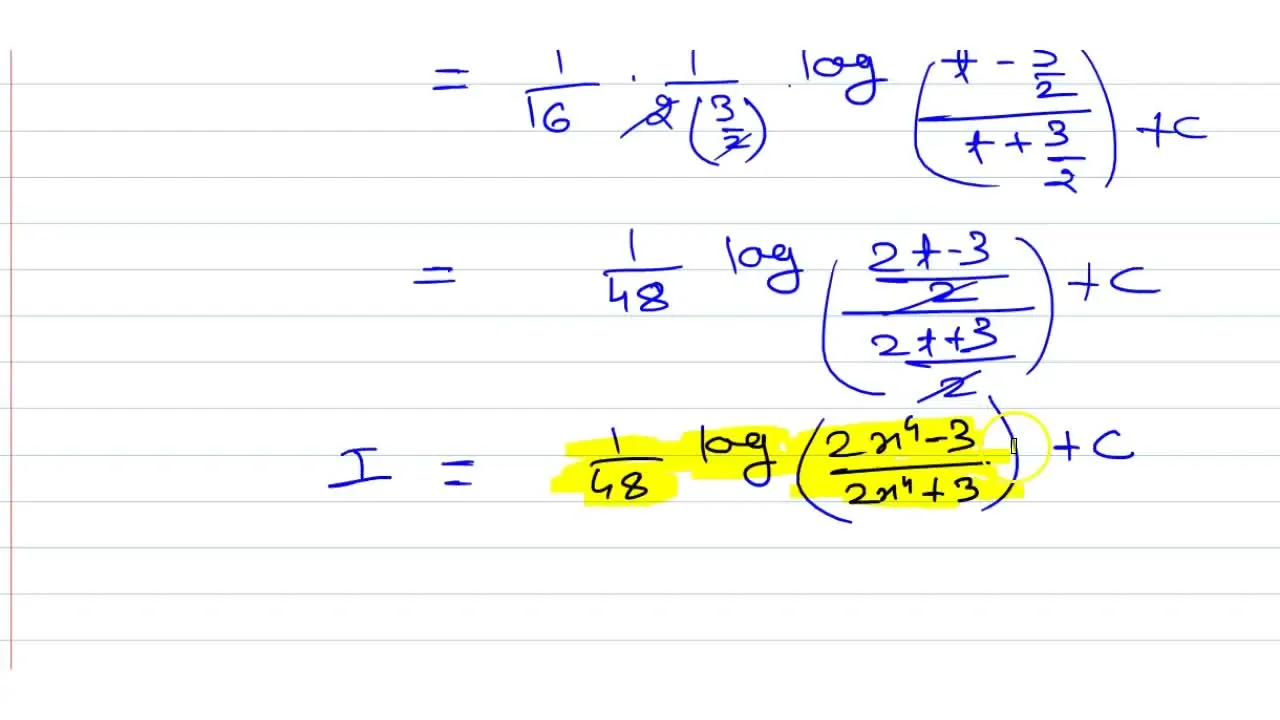 = 1/16 · 1/(2(3/2)) · log((t - 3/2)/(t + 3/2)) + C
= 1/48 log(((2t-3)/2)/((2t+3)/2)) + C
I = 1/48 log((2x⁴-3)/(2x⁴+3)) + C